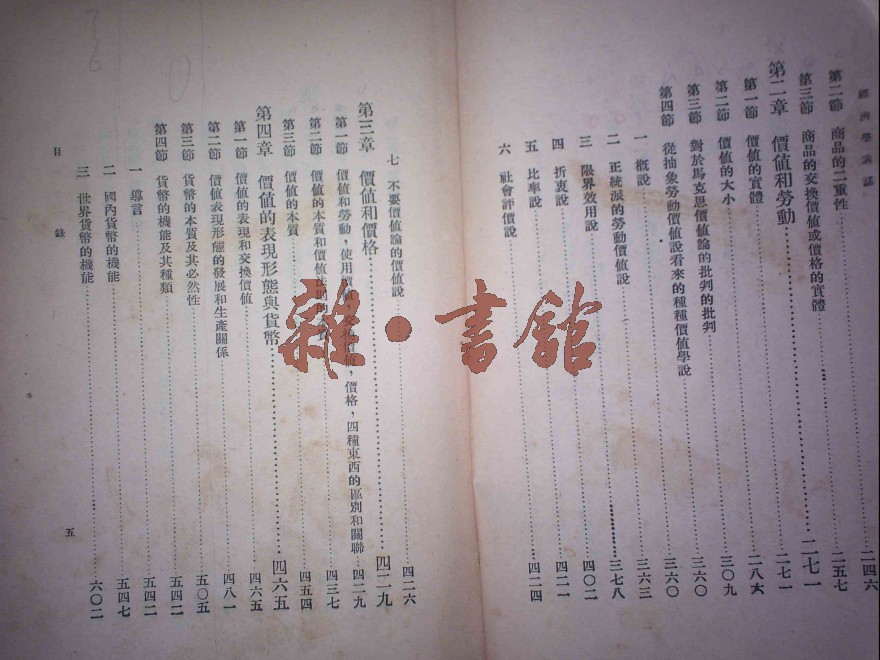 經濟學講話
第二節 商品的二重性……二四六
第三節 商品的交換價值或價格的實體……二五七
第二章 價值和勞動……二七一
第一節 價值的實體……二七一
第二節 價值的大小……二八六
第三節 對於馬克思價值論的批判的批判……三〇九
第四節 從抽象勞動價值說看來的種種價值學說……三六〇
一 概說……三六〇
二 正統派的勞動價值說……三六三
三 限界效用說……三七八
四 折衷說……四〇二
五 比率說……四二一
六 社會評價說……四二四
七 不要價值論的價值說……四二六
第三章 價值和價格……四二九
第一節 價值和勞動，使用價值，交換價值，價格，四種東西的區別和關聯……四二九
第二節 價值的本質和價值法則……四三七
第三節 價值的本質……四五四
第四章 價值的表現形態與貨幣……四六五
第一節 價值的表現和交換價值……四六五
第二節 價值表現形態的發展和生產關係……四八一
第三節 貨幣的本質及其必然性……五〇五
第四節 貨幣的機能及其種類……五四二
一 導言……五四二
二 國內貨幣的機能……五四七
三 世界貨幣的機能……六〇二
目錄 五
雜·書館